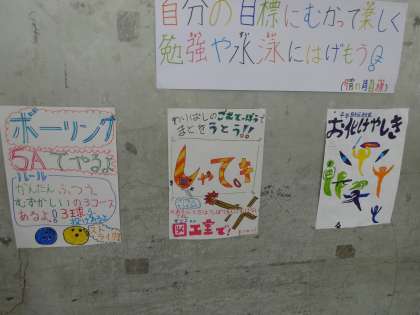 自分の目標にむかって楽しく
勉強や水泳にはげもう!
ボーリング
5Aでやるよ
ルール
かんたん ふつう
むずかしいの3コース
あるよ! 3球
わりばしのごむてっぽうで
まとをうとう!!
しゃてき
図工室で!
お化けやしき